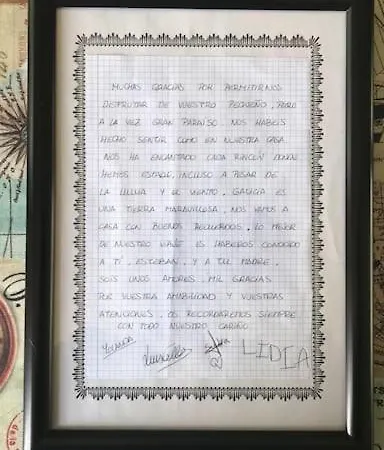 MUCHAS GRACIAS POR PERMITIRNOS
DISFRUTAR DE VUESTRO PEQUEÑO, PERO
A LA VEZ GRAN PARAISO. NOS HABEIS
HECHO SENTIR COMO EN NUESTRA CASA
NOS HA ENCANTADO CADA RINCÓN DONDE
HEMOS ESTADO, INCLUSO A PESAR DE
LA LLUVIA Y EL VIENTO, GALICIA ES
UNA TIERRA MARAVILLOSA. NOS VAMOS A
CASA CON BUENOS RECUERDOS. LO MEJOR
DE NUESTRO VIAJE ES HABEROS CONOCIDO
A TI, ESTEBAN, Y A TU MADRE.
SOIS UNOS AMORES. MIL GRACIAS
POR VUESTRA AMABILIDAD Y VUESTRAS
ATENCIONES. OS RECORDAREMOS SIEMPRE
CON TODO NUESTRO CARIÑO
YOLANDA LIDIA
de la